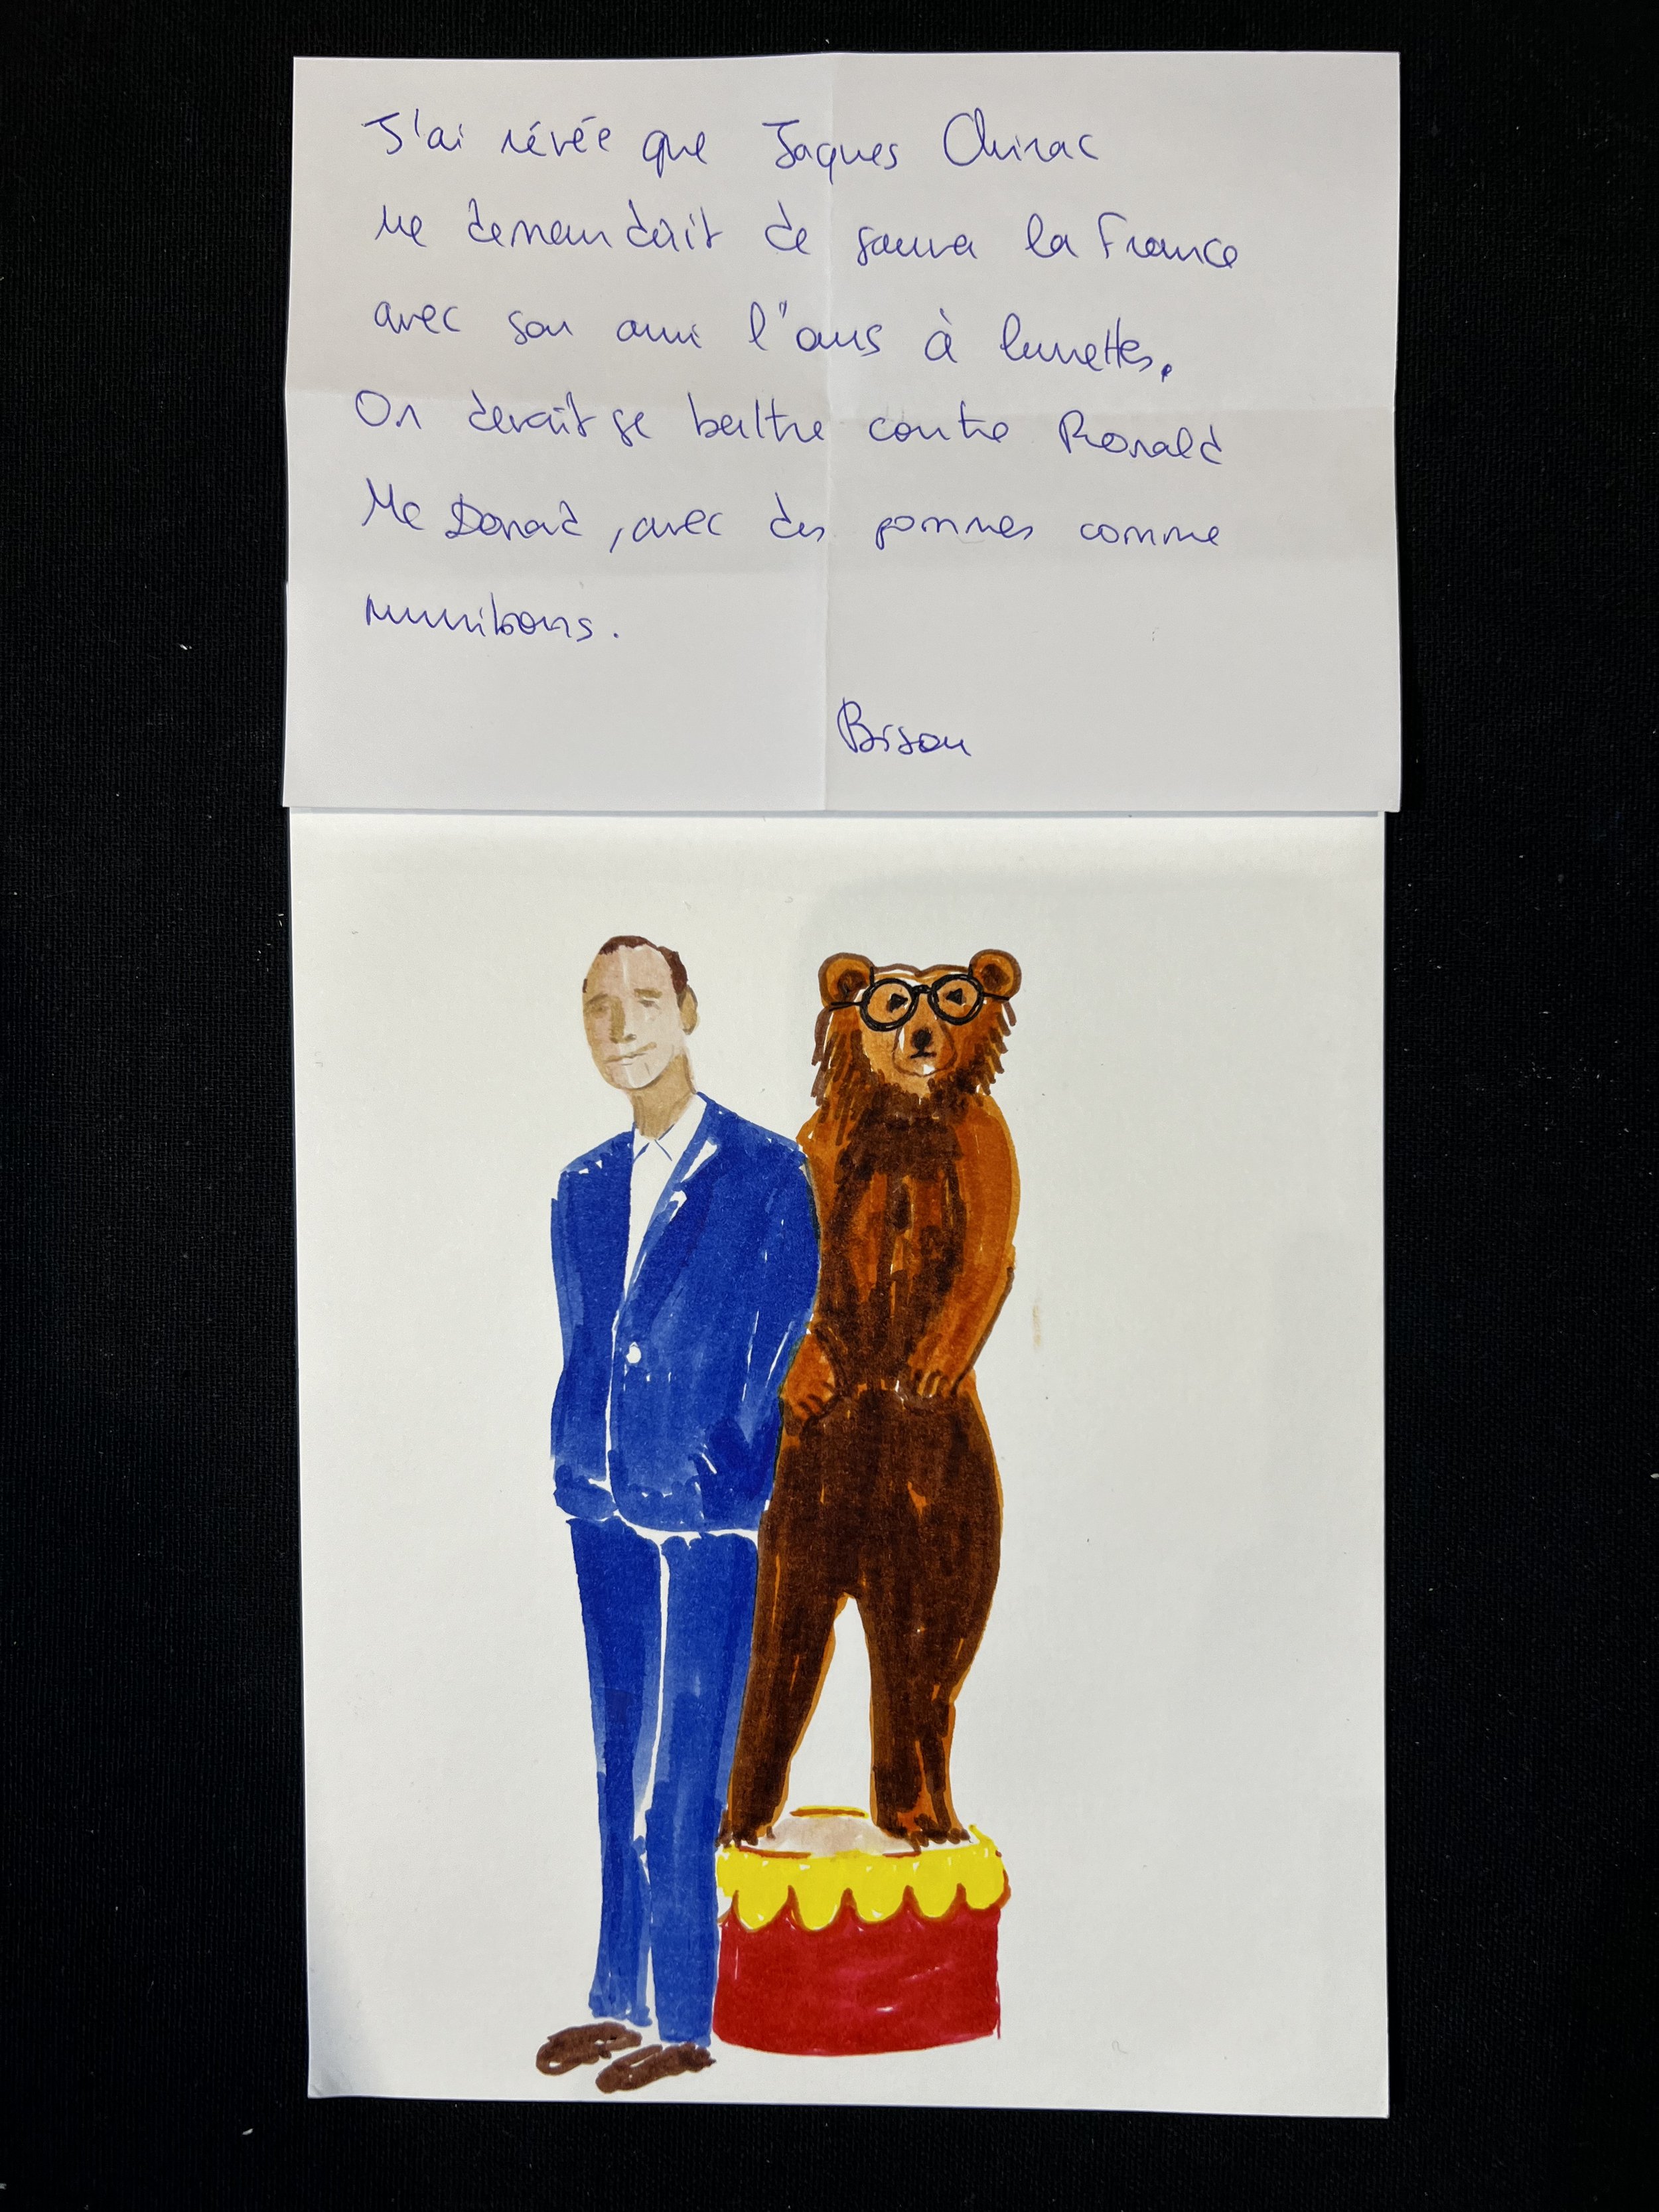 J'ai révée que Jaques Chirac
me demandait de sauver la France
avec son ami l'ours à lunettes.
On devait se battre contre Ronald
Mc Donald, avec des pommes comme
munitions.
Bison